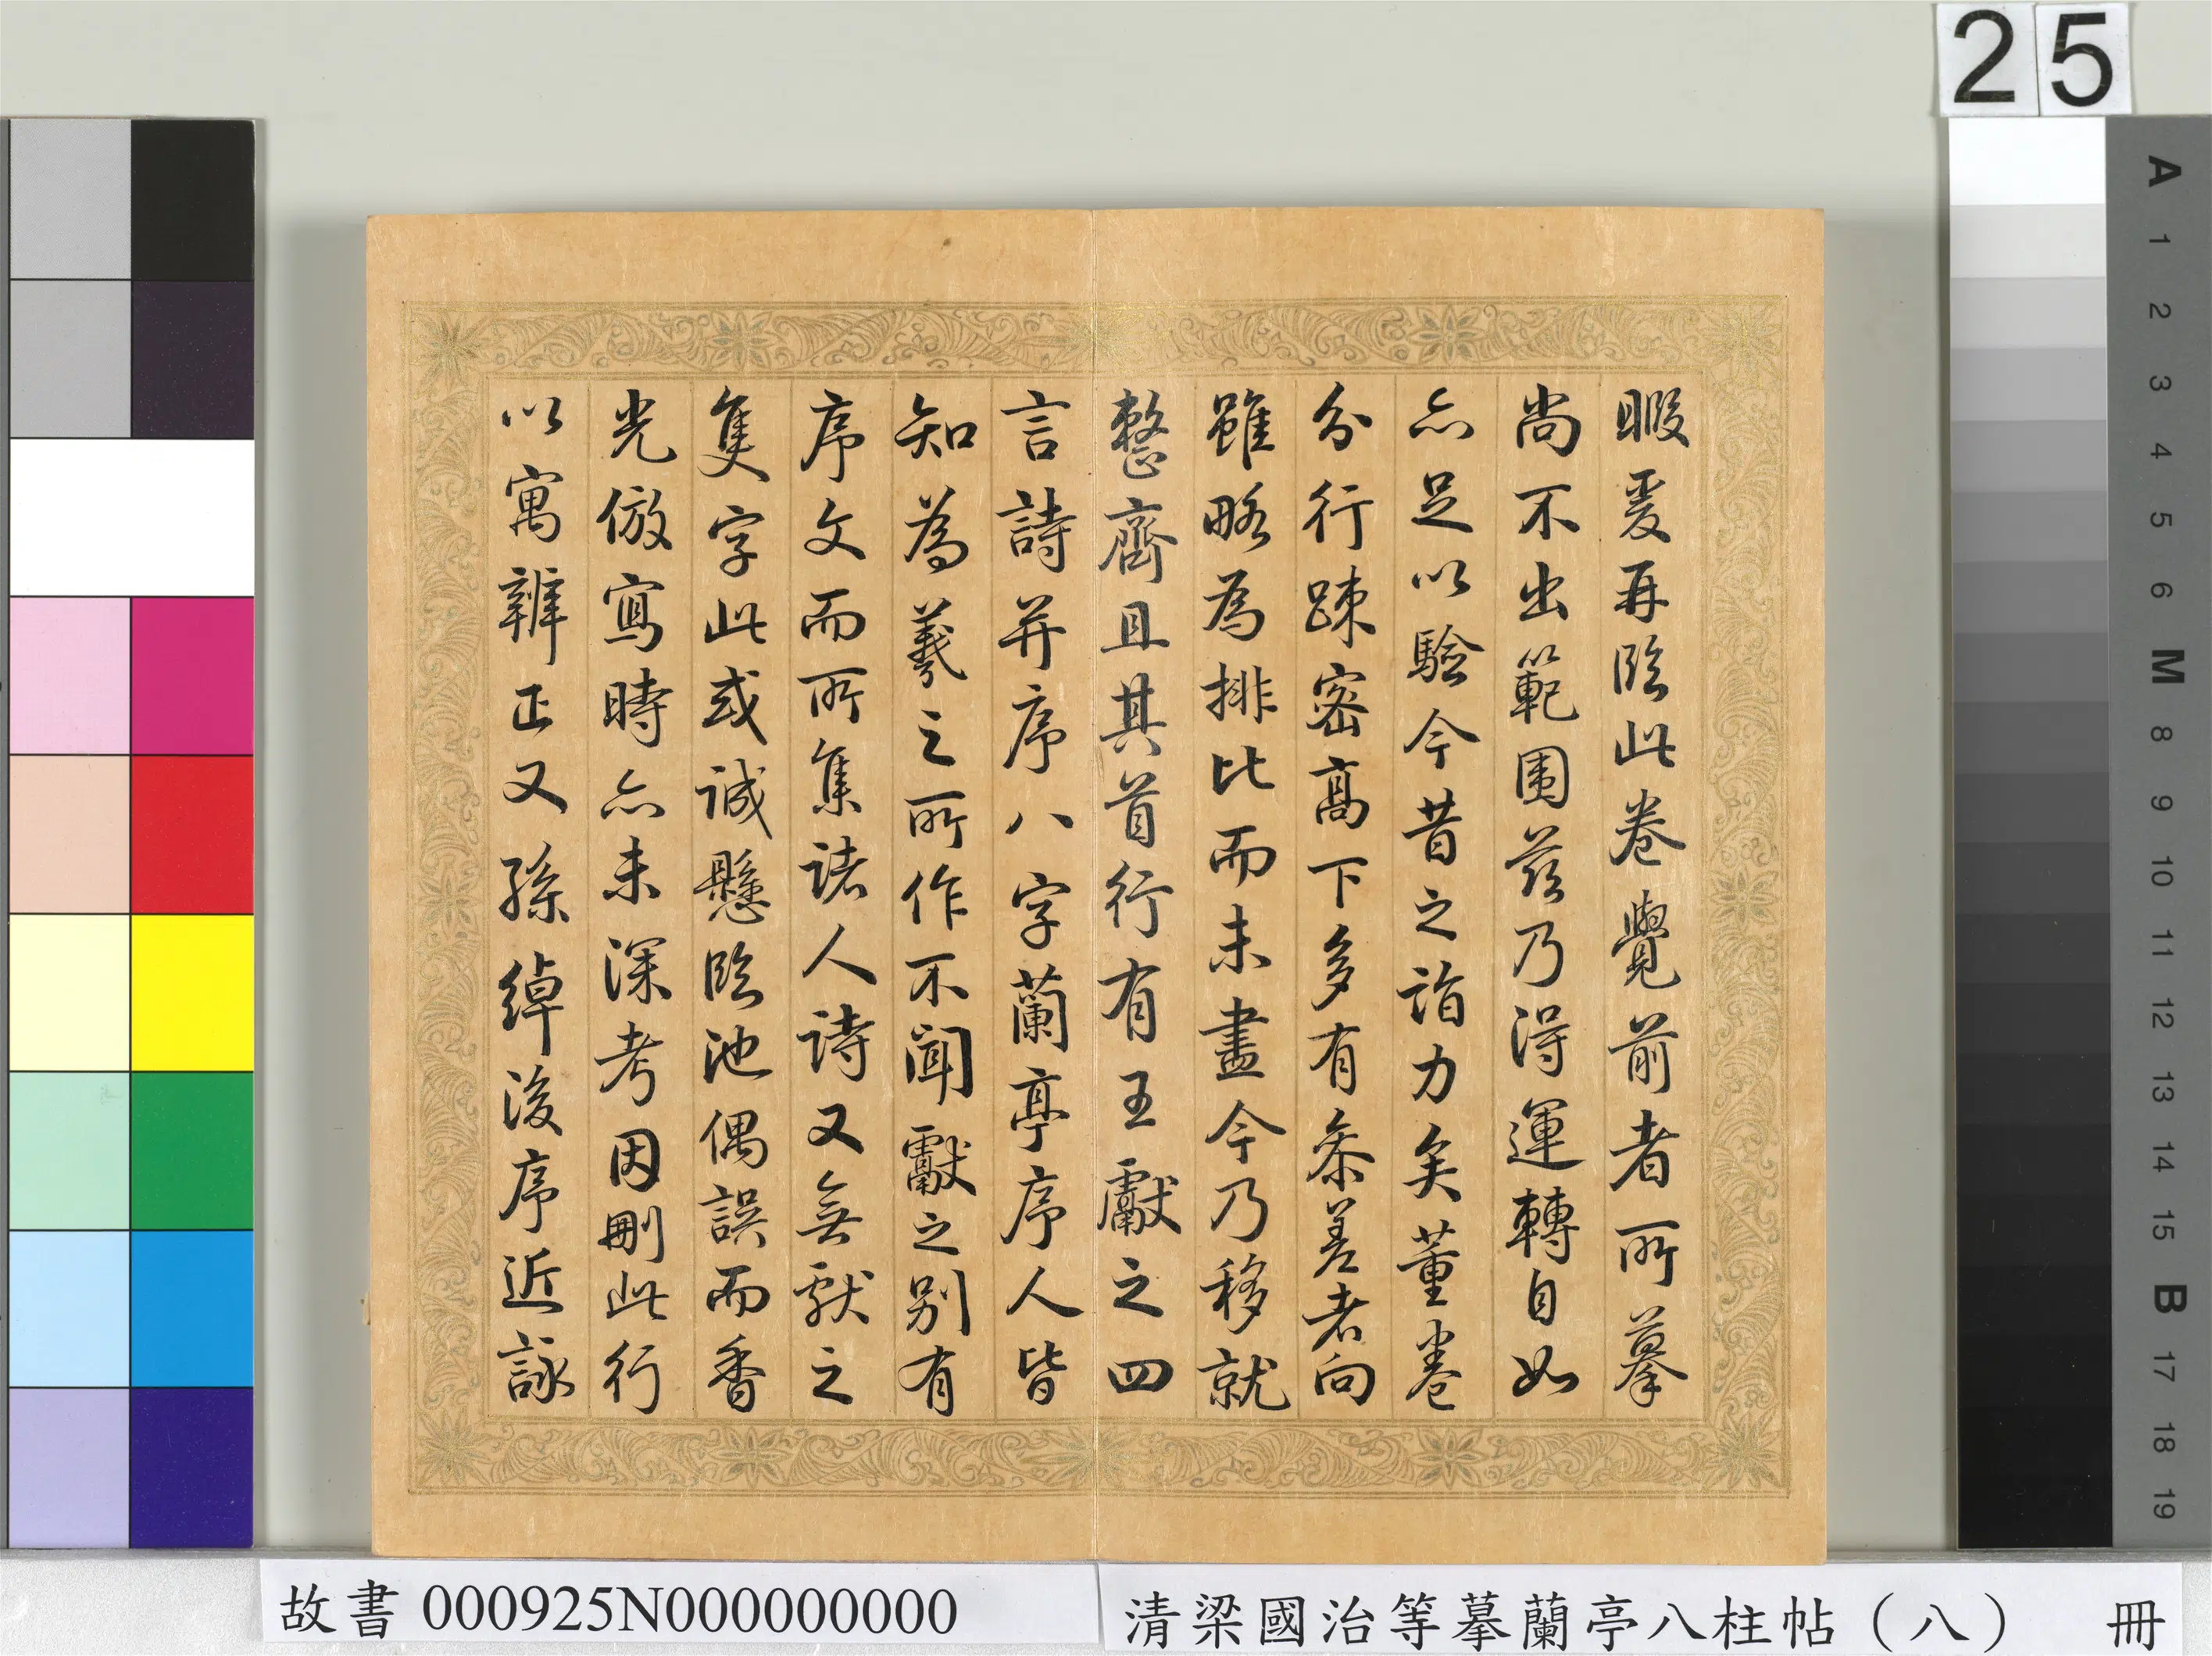 25
暇爰再臨此卷覺前者所摹
尚不出範圍茲乃得運轉自如
亦足以驗今昔之詣力矣董卷
分行疎密高下多有參差者向
雖略為排比而未盡今乃移就
整齊且其首行有王獻之四
言詩并序八字蘭亭序人皆
知為羲之所作不聞獻之別有
序文而所集諸人詩又無獻之
隻字此或誠懸臨池偶誤而香
光倣寫時亦未深考因刪此行
以寓辨正又孫綽後序近詠
A 1 2 3 4 5 6 M 8 9 10 11 12 13 14 15 B 17 18 19
故書 000925N000000000
清梁國治等摹蘭亭八柱帖（八） 冊